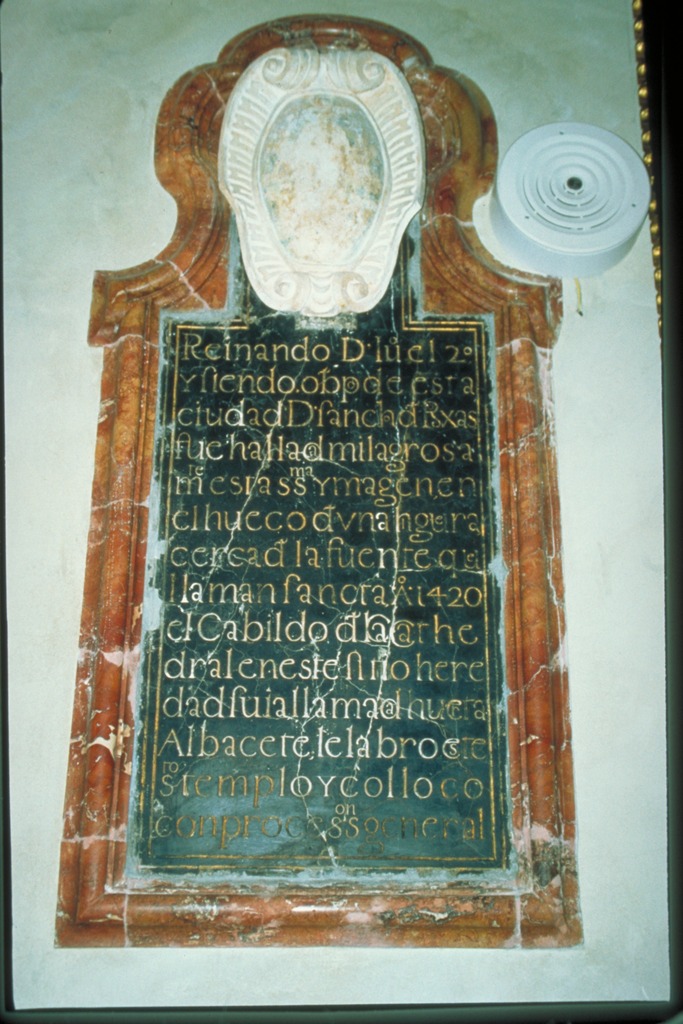 Reinando D. Iu.el 2º
y siendo obpo de esta
ciudad D. sancho d Rxas
fue hallada milagrosa
mte esta ssma ymagen en
el hueco d vna higuera
cerca d la fuente q
llaman sancta Aº 1420
el Cabildo d la cathe
dral en este sitio here
dad suia llamada huerta
Albacete, le labro este
sto templo y colloco
con procession general